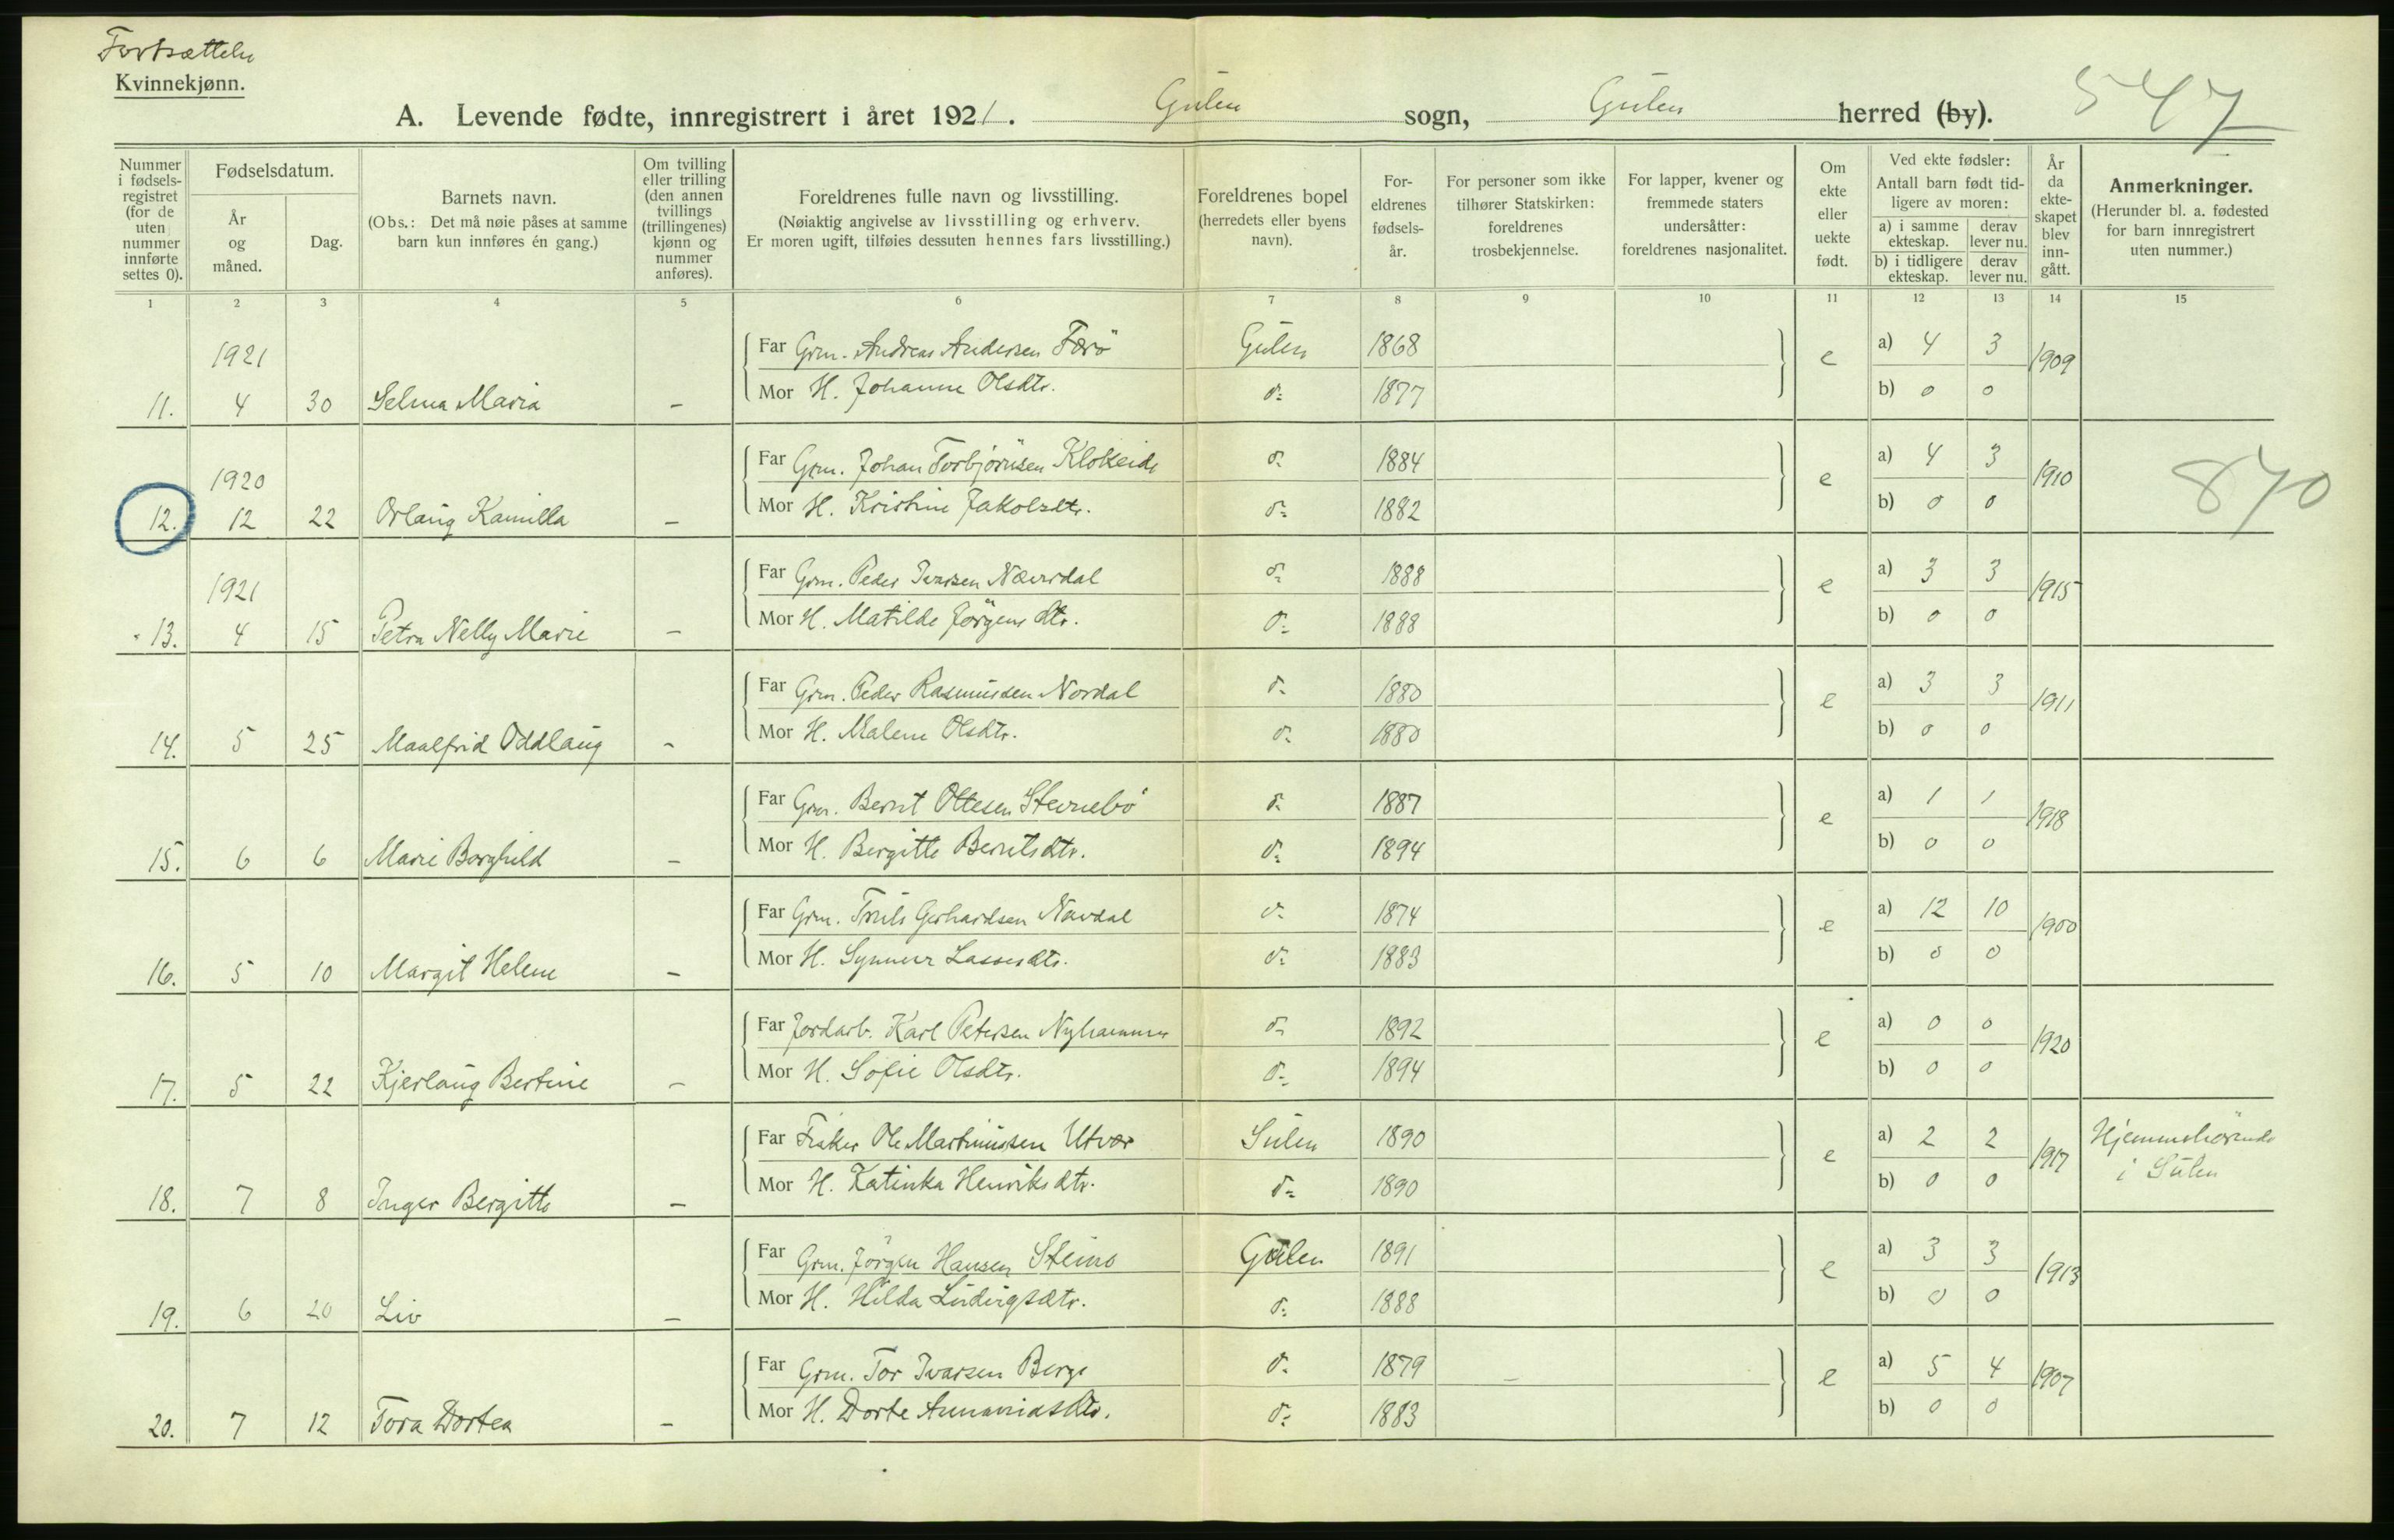 Fortsættelse
Kvinnekjønn.
A. Levende fødte, innregistrert i året 1921. Gulen sogn, Gulen herred (by). 547
Nummer i fødsels-registret (for de uten nummer innførte settes 0).
Fødselsdatum.
År og måned.
Dag.
Barnets navn.
(Obs.: Det må nøie påses at samme barn kun innføres én gang.)
Om tvilling eller trilling (den annen tvillings (trillingenes) kjønn og nummer anføres).
Foreldrenes fulle navn og livsstilling.
(Nøiaktig angivelse av livsstilling og erhverv.
Er moren ugift, tilføies dessuten hennes fars livsstilling.)
Foreldrenes bopel (herredets eller byens navn).
For-eldrenes fødsels-år.
For personer som ikke tilhører Statskirken: foreldrenes trosbekjennelse.
For lapper, kvener og fremmede staters undersåtter: foreldrenes nasjonalitet.
Om ekte eller uekte født.
Ved ekte fødsler: Antall barn født tid-ligere av moren:
a) i samme ekteskap. derav lever nu.
b) i tidligere ekteskap. derav lever nu.
År da ekte-skapet blev inn-gått.
Anmerkninger.
(Herunder bl. a. fødested for barn innregistrert uten nummer.)
1 2 3 4 5 6 7 8 9 10 11 12 13 14 15
1921 Far Grm. Andreas Andersen Færö Gulen 1868 e a) 4 3 1909
11. 4 30 Selma Maria – Mor H. Johanne Olsdtr. do 1877 b) 0 0
1920 Far Grm. Johan Torbjörnsen Klokeide do 1884 e a) 4 3 1910 870
12. 12 22 Orlaug Kamilla – Mor H. Kristine Jakobsdtr. do 1882 b) 0 0
1921 Far Grm. Peder Ivarsen Nævrdal do 1888 e a) 3 3 1915
13. 4 15 Petra Nelly Marie – Mor H. Matilde Jörgensdtr. do 1888 b) 0 0
Far Grm. Peder Rasmussen Nordal do 1880 e a) 3 3 1911
14. 5 25 Maalfrid Oddlaug – Mor H. Malene Olsdtr. do 1880 b) 0 0
Far Grm. Bernt Ottesen Stevnebö do 1887 e a) 1 1 1918
15. 6 6 Marie Borghild – Mor H. Bergitte Berntsdtr. do 1894 b) 0 0
Far Grm. Truls Gerhardsen Nordal do 1874 e a) 12 10 1900
16. 5 10 Margit Helene – Mor H. Synneva Lassesdtr. do 1883 b) 0 0
Far Jordarb. Karl Petersen Nyhammer do 1892 e a) 0 0 1920
17. 5 22 Kjerlaug Bertine – Mor H. Sofie Olsdtr. do 1894 b) 0 0
Far Fisker Ole Martinussen Utvær Sulen 1890 e a) 2 2 1917 Hjemmehörende
18. 7 8 Inger Bergitte – Mor H. Katinka Henriksdtr. do 1890 b) 0 0 i Sulen
Far Grm. Jörgen Hansen Steine Gulen 1891 e a) 3 3 1913
19. 6 20 Liv – Mor H. Hilda Ludvigsdtr. do 1888 b) 0 0
Far Grm. Tor Ivarsen Berge do 1879 – e a) 5 4 1907
20. 7 12 Tora Dortea – Mor H. Dorte do 1883 b) 0 0